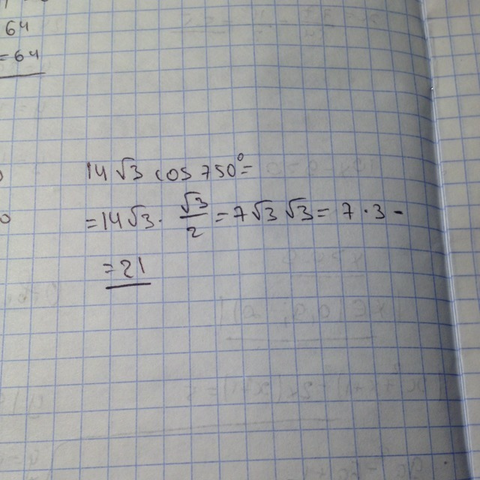 64
=64
14√3 cos 750°=
=14√3 · √3/2 = 7√3 √3 = 7 · 3 -
=21